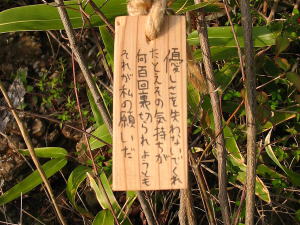 優しさを失わないでくれ
たとえその気持ちが
何百回裏切られようとも
それが私の願いだ